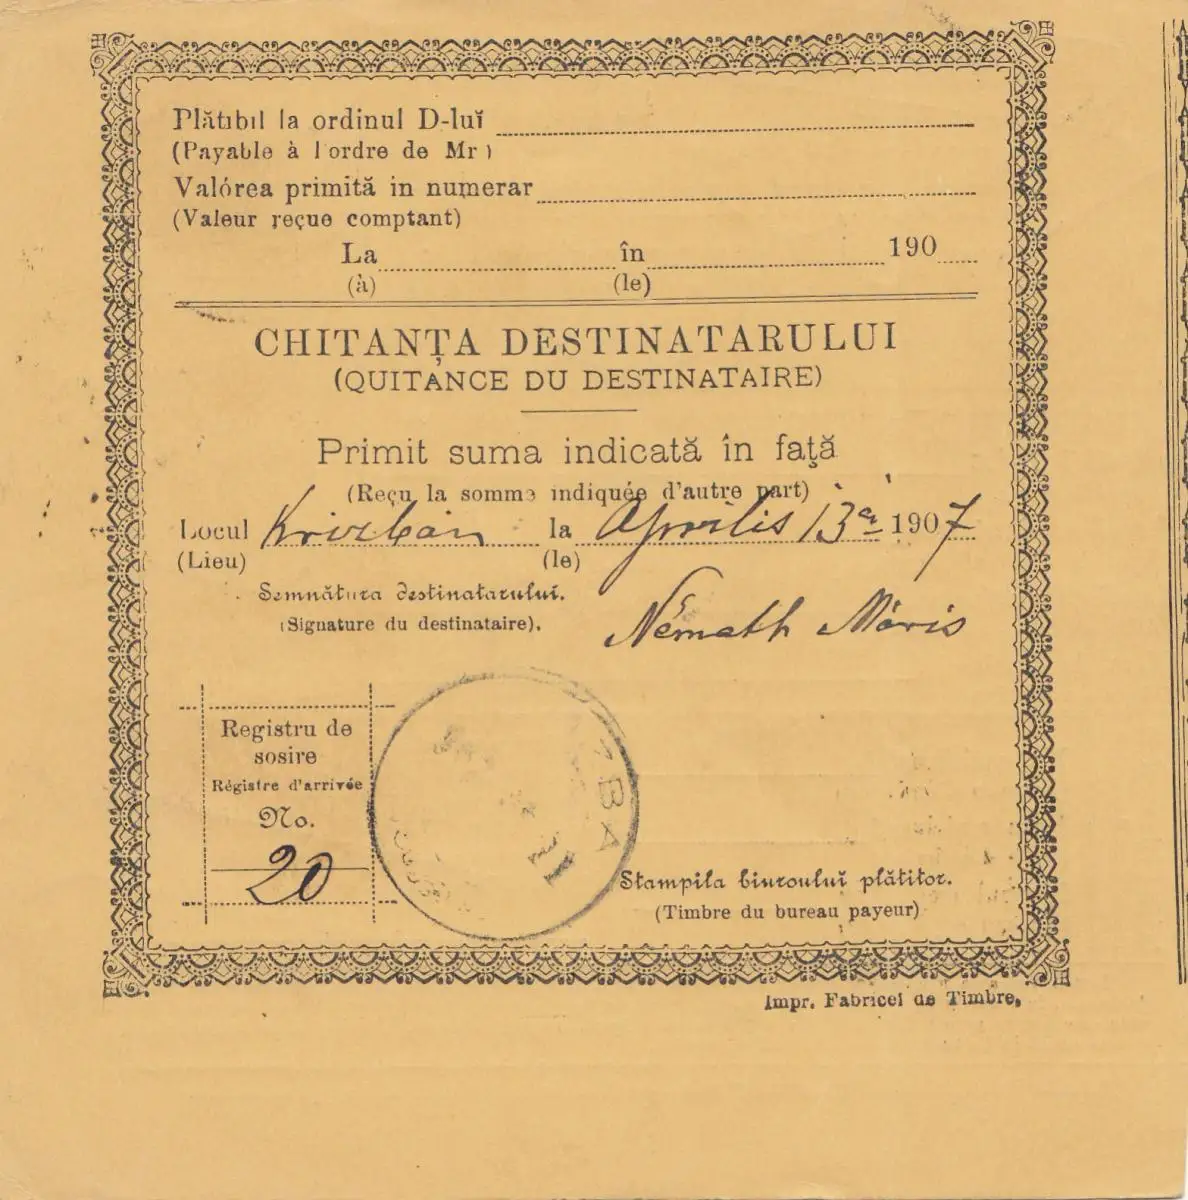 Plătibil la ordinul D-luĭ
(Payable à l'ordre de Mr)
Valórea primită in numerar
(Valeur reçue comptant)
La în 190
(à) (le)
CHITANȚA DESTINATARULUI
(QUITANCE DU DESTINATAIRE)
Primit suma indicată în față
(Reçu la somme indiquée d'autre part)
Locul Krizbán la Aprilis 13án 1907
(Lieu) (le)
Semnătura destinatarului.
(Signature du destinataire).
Németh Máris
Registru de
sosire
Régistre d'arrivée
No.
20
ZBA
Stampila biurouluĭ plătitor.
(Timbre du bureau payeur)
Impr. Fabricei de Timbre.